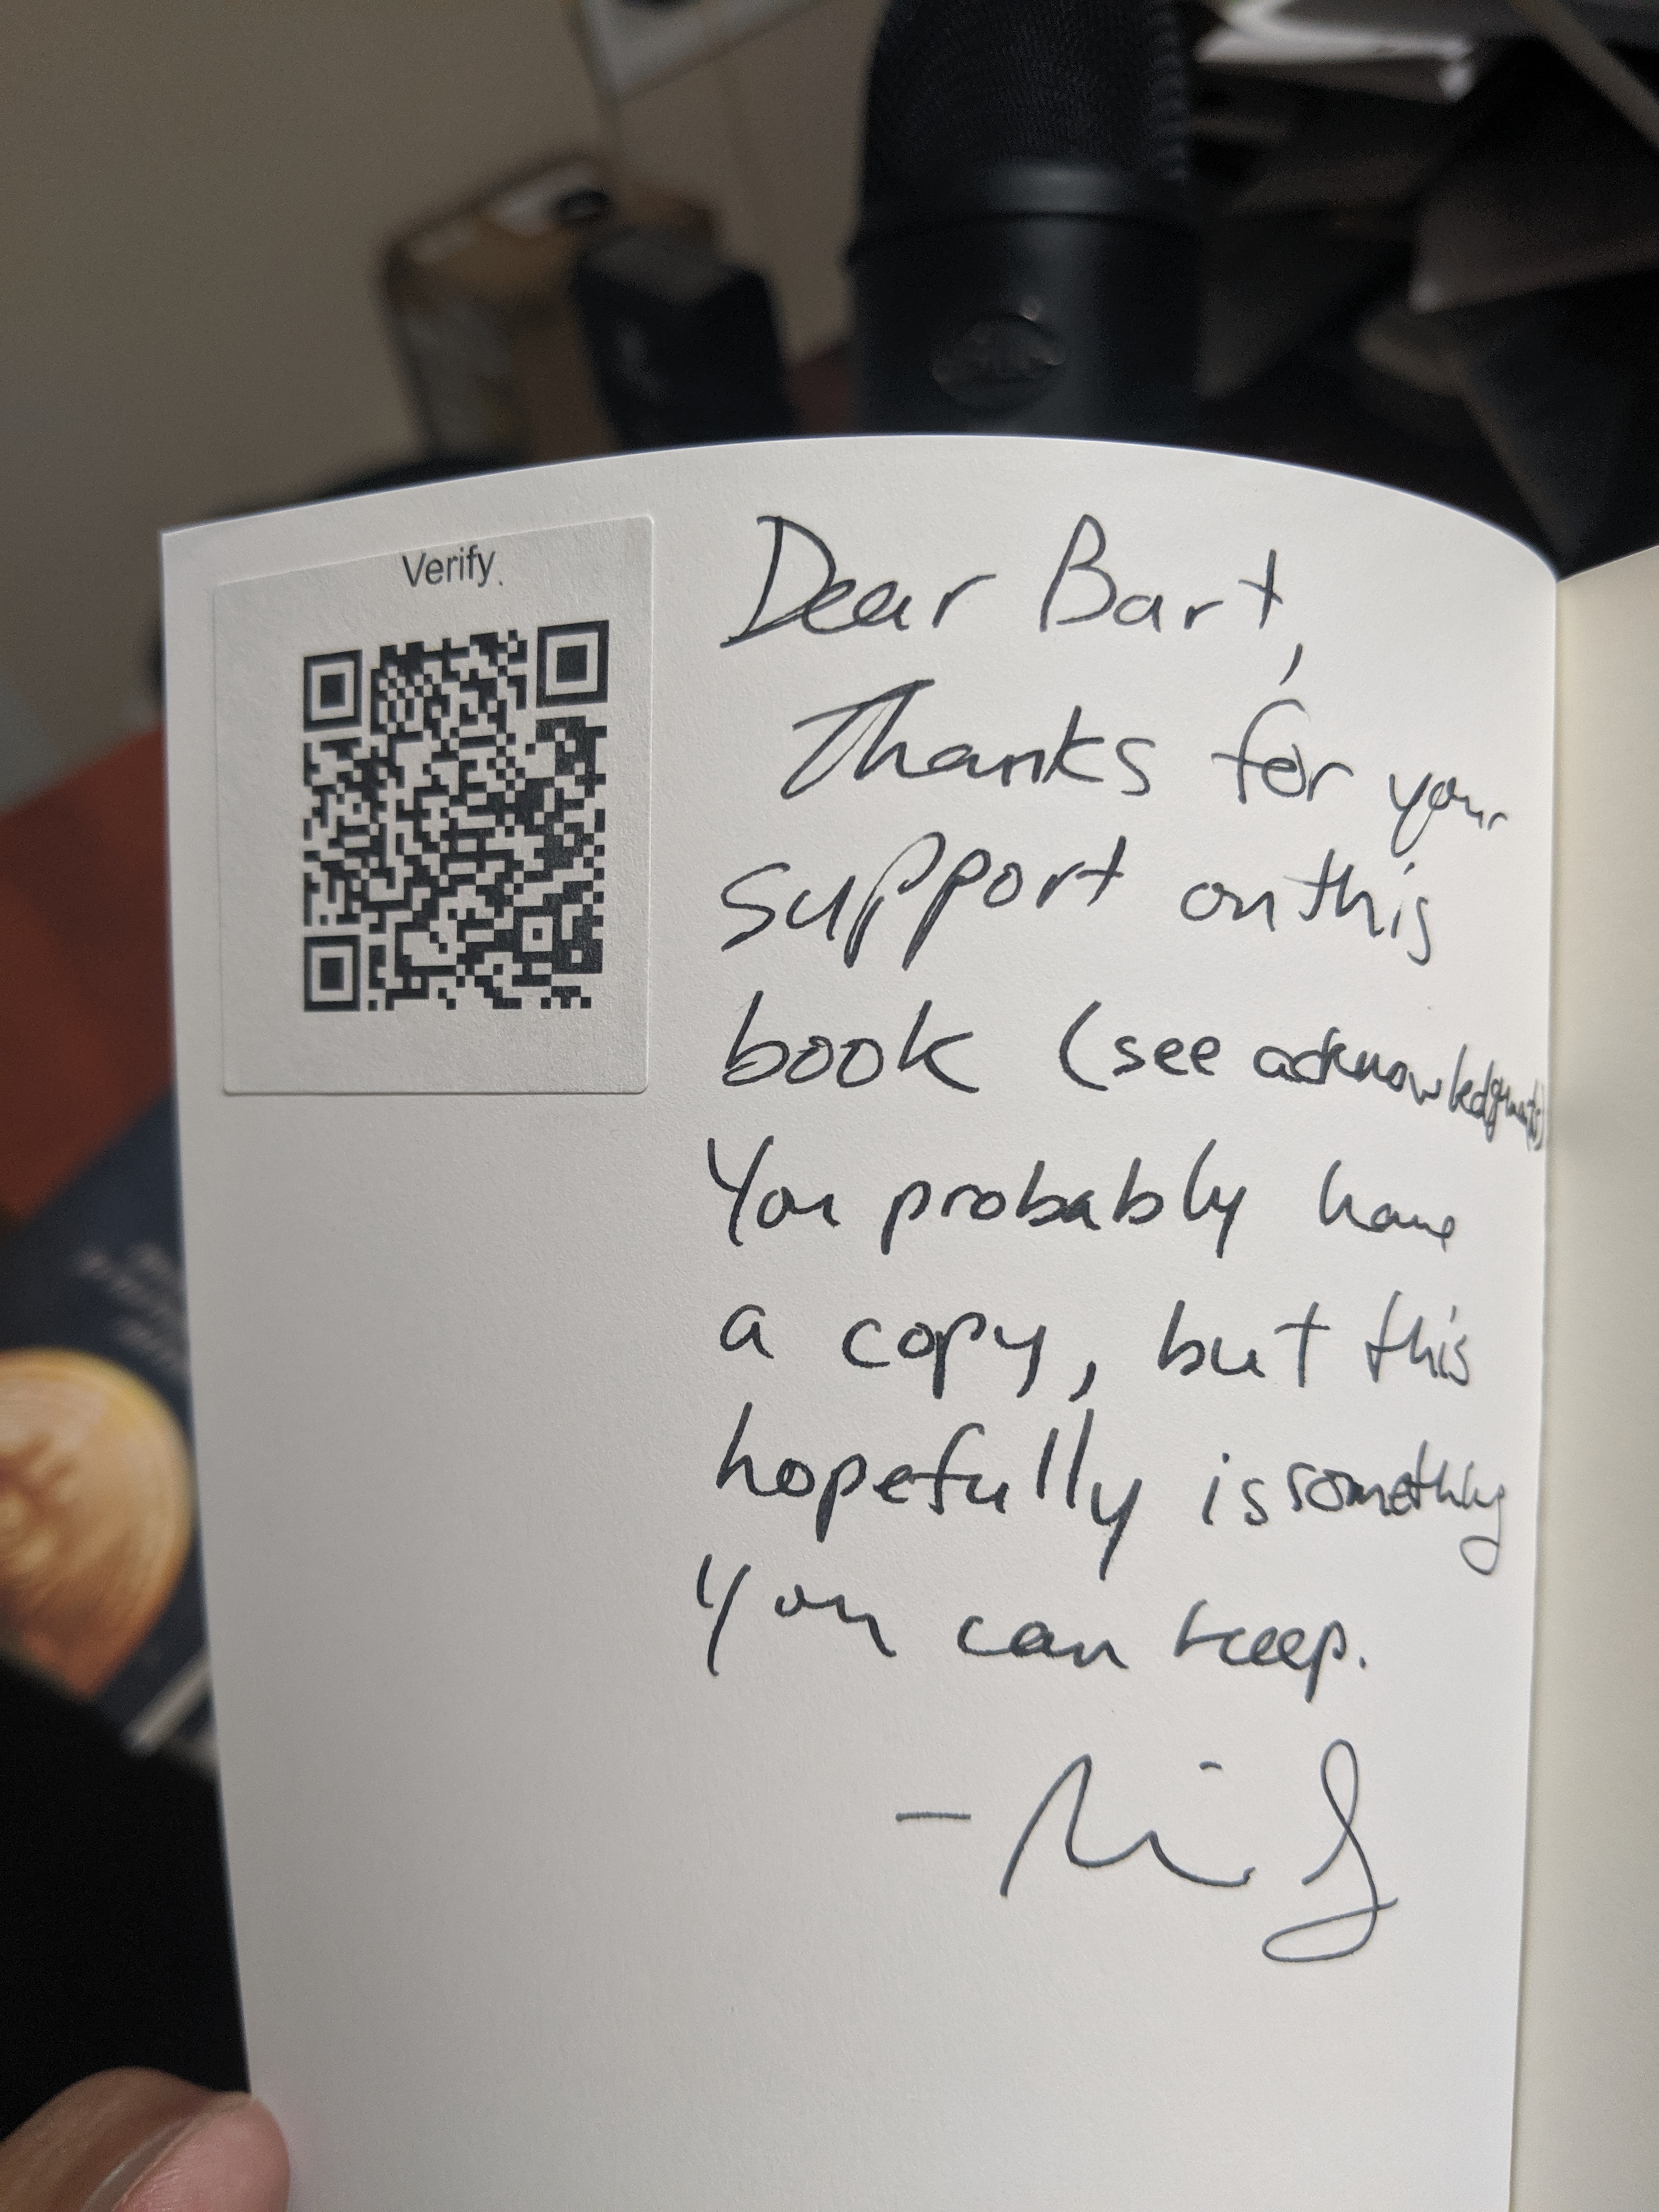 Verify.
Dear Bart,
Thanks for your
support on this
book (see acknowledgments)
You probably have
a copy, but this
hopefully is something
you can keep.